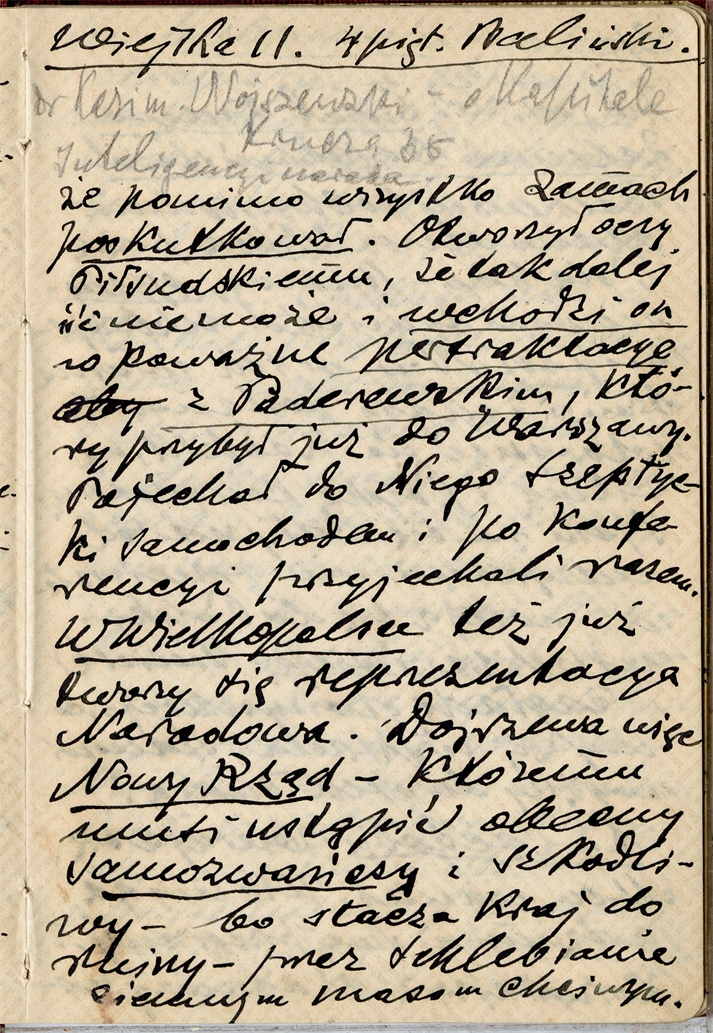 Wiejska 11. 4 pięt. Baliński.
dr Kazim. Wojszewski – o Kapitale
Krucza 36
Inteligencyi
że pomimo wszystko zamach
poskutkował. Otworzył oczy
Piłsudskiemu, że tak dalej
iść nie może i wchodzi on
w poważne pertraktacye
aby z Paderewskim, któ-
ry przybył już do Warszawy.
Pojechał do Niego Szeptyc-
ki samochodem i po konfe
rencyi przyjechali razem.
W Wielkopolsce też już
tworzy się reprezentacya
Narodowa. Dojrzewa więc
Nowy Rząd – któremu
musi ustąpić obecny
samozwańczy i szkodli-
wy – bo stacza kraj do
ruiny – przez schlebianie
ciemnym masom chciwym.